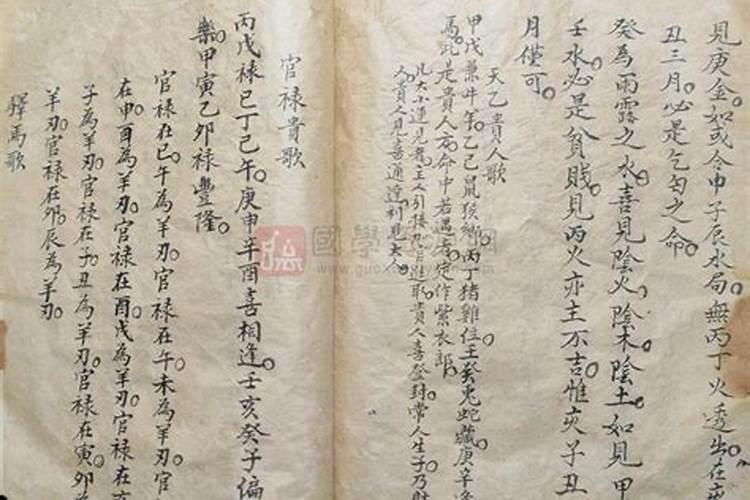 見庚金。如或令巾子辰水局。無丙丁火透出。在
丑三月。必是乞匃之命。
癸為雨露之水。喜見陰火。陰木陰土。如見甲
壬水。必是貧賤。見丙火亦主不吉。惟亥子丑
月僅可。
天乙貴人歌
甲戊兼牛羊。乙己鼠猴鄉。丙丁猪雞位。壬癸兎蛇藏。庚辛逢
馬。此是貴人方。命中若遇者。定作紫衣郎。
凡大小運見
貴人喜登封。常人生子乃財
人。貴人見喜通達。利見大人。
官禄貴歌
丙戊禄巳丁己午。庚申辛酉喜相逢。壬亥癸子偏
樂。甲寅乙夘禄豐隆。
官禄在巳。午為羊刃。官禄在午。未為羊刃。官
在申。酉為羊刃。官禄在酉。戌為羊刃。官禄在
子為羊刃。官禄在子。丑為羊刃。官禄在寅。夘為
羊刃。官禄在夘。辰為羊刃。
驛馬歌
國學
www.guox